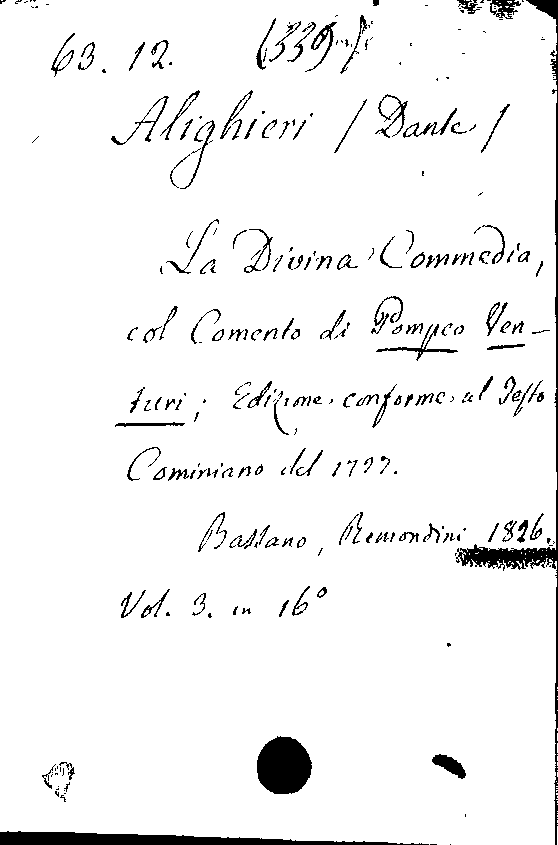 63. 12. (339
Alighieri / Dante /
La Divina Commedia,
col Comento di Pompeo Ven-
turi; Edizione conforme al Testo
Cominiano del 1727.
Bassano, Remondini 1826.
Vol. 3. in 16°